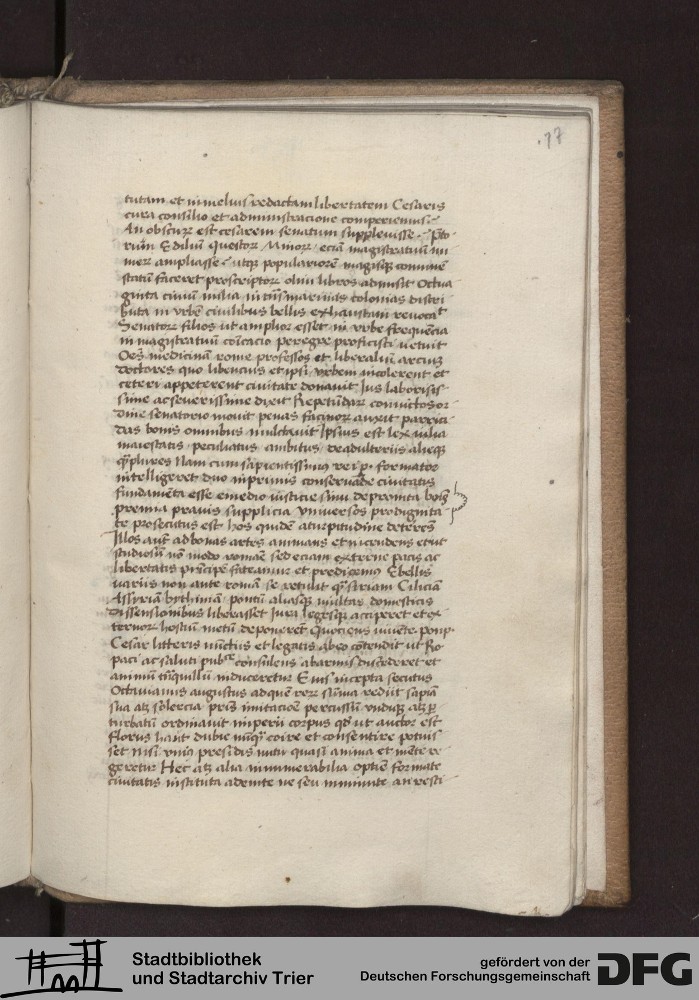 17
tutam et in melius redactam libertatem Cesaris
cura consilio et administracione comperiemus
An obscurum est cesarem senatum supplevisse P̄to
rum Edilium questorum Minorum eciam magistratuum nu
merum ampliasse utque populariorem magisque communem
statum faceret proscriptorum olim libros admisit Octua
ginta civium milia in transmarinas colonias distri
buta in urbem civilibus bellis exhaustam revocat
Senatorum filios ut amplior esset in urbe frequencia
in magistratuum comitacio peregre proficisci vetuit
Oes medicinam rome professos et liberalium arcium
doctores quo libencius et ipsi urbem incolerent et
ceteri appeterent civitate donavit Ius laboriosis
sime ac severissime dixit Repetundarum convictos or
dine senatorio movit penas facinorum auxit parrici
das bonis omnibus mulctavit Ipsius est lex iulia
maiestatis peculatus ambitus de adulteriis alieque
quamplures Nam cum sapientissimus rei p. formator
intelligeret duo inprimis conservande civitatis
fundamenta esse e medio iusticie sinu deprompta bonis
premia pravis supplicia universos pro dignita
te prosecutus est hos quidem a turpitudine deterrens
Illos autem ad bonas artes animans et incendens et ut
studiosum non modo romane sed eciam externe pacis ac
libertatis principem fateamur et predicemus E bellis
variis non ante romam se retulit quam siriam Ciliciam
Assyriam bythiniam pontum aliasque multas domesticis
dissensionibus liberasset Iura legesque acciperet et ex
ternorum hostium metum deponeret Quociens vivente pomp.
Cesar litteris nunctiis et legatis ab eo contendit ut Ro
paci ac saluti publice consulens ab armis discederet et
animum tranquillum induceretur Eius incepta secutus
Octavianus augustus ad quem rerum summa rediit sapien
sua atque solercia patris imitacione percussum undique atque per
turbatum ordinavit imperii corpus quod ut auctor est
florus haut dubie nunquam coire et consentire potuis
set Nisi unius presidis nutu quasi anima et mente re
geretur Hec atque alia innumerabilia optime formate
civitatis instituta ademte ne seu imminute an resti
Stadtbibliothek
und Stadtarchiv Trier
gefördert von der
Deutschen Forschungsgemeinschaft
DFG